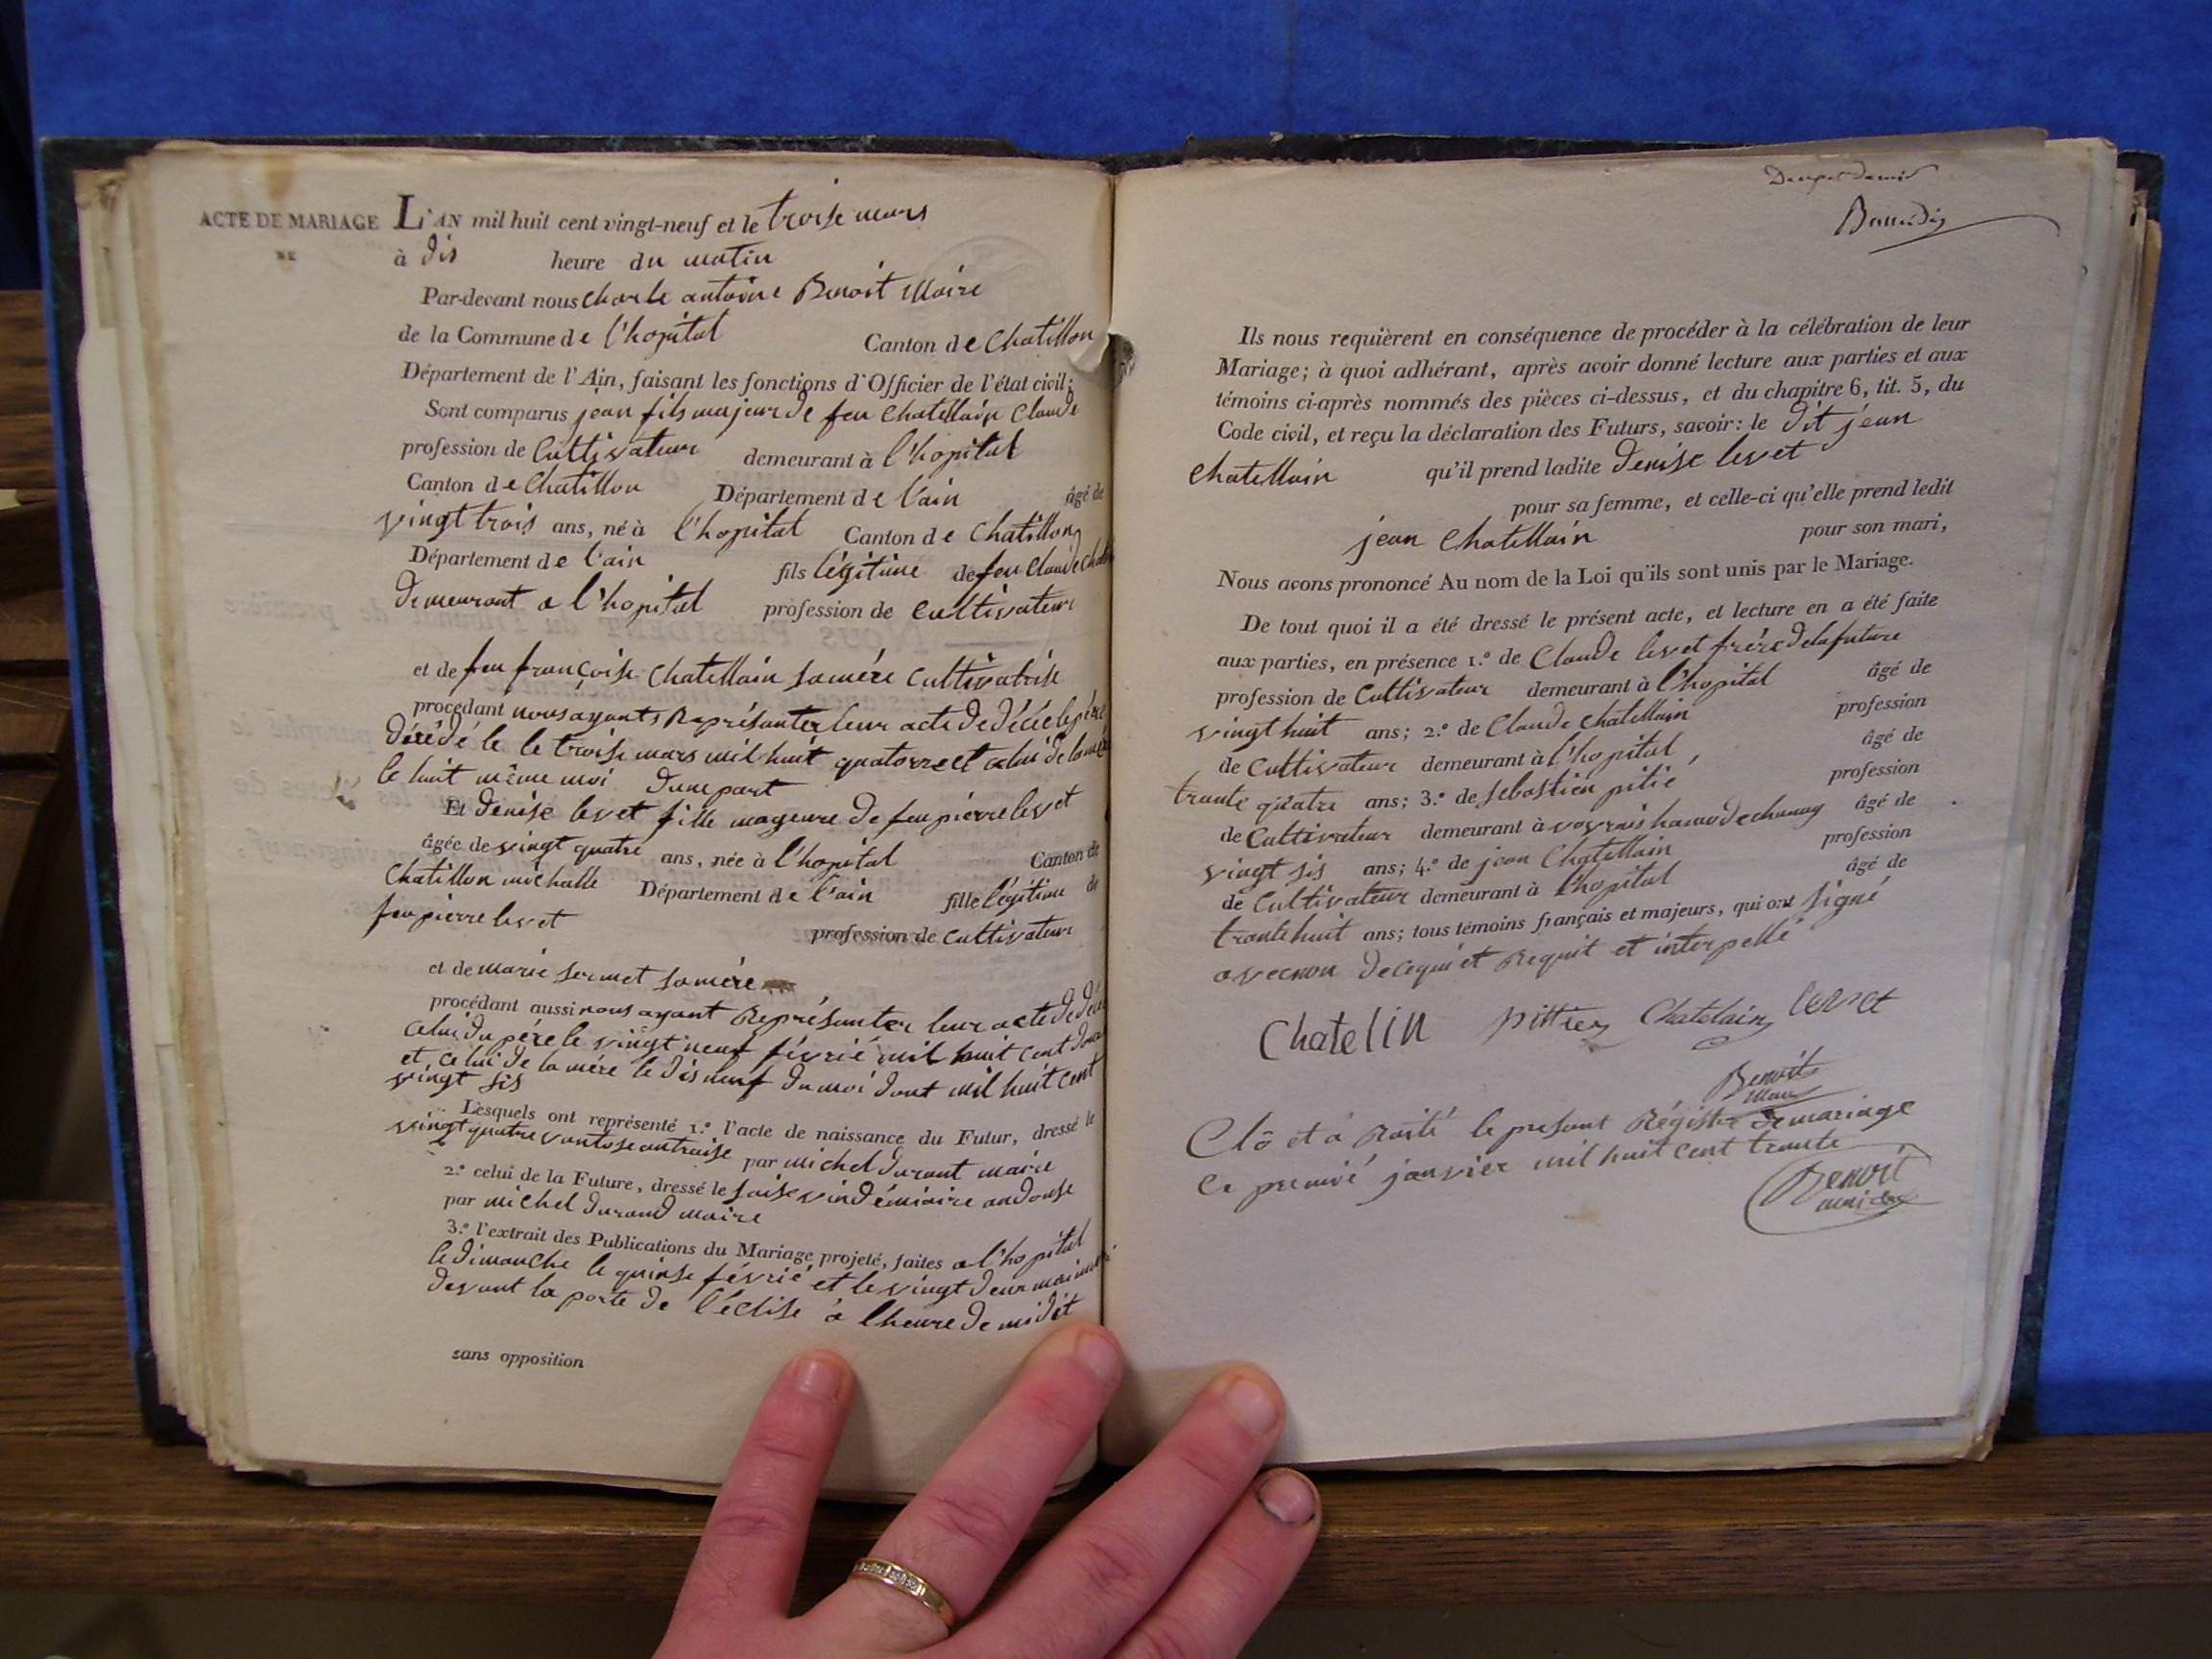 ACTE DE MARIAGE
DE
L'AN mil huit cent vingt-neuf et le troise mars
à dis heure du matin
Par-devant nous charle antoine Benoit Maire
de la Commune de l'hopital Canton de Chatillon
Département de l'Ain, faisant les fonctions d'Officier de l'état civil;
Sont comparus jean fils majeur de feu Chatellain Claude
profession de Cultivateur demeurant à l'hopital
Canton de Chatillon Département de l'ain âgé de
vingt trois ans, né à l'hopital Canton de Chatillon
Département de l'ain fils légitime de feu Claude
demeurant a l'hopital profession de cultivateur
et de feu françoise Chatellain samére Cultivatrise
procédant nous ayants Représanter leur acte de décée le pére
décédé le le troise mars mil huit quatorze et celui de la
le huit même moi dune part
Et denise levet fille mageure de feu pierre levet
âgée de vingt quatre ans, née à l'hopital Canton de
Chatillon michalle Département de l'ain fille légitime de
feu pierre levet profession de cultivateur
et de marie sermet samére
procédant aussi nous ayant Représanter leur acte de
celui du pére le vingt neuf févrié mil huit cent
et celui de la mére le dis neuf du moi dout mil huit cent
vingt sis
Lesquels ont représenté 1.º l'acte de naissance du Futur, dressé le
vingt quatre vantose antraise par michel durant maire
2.º celui de la Future, dressé le saise vindémiaire an douse
par michel durand maire
3.º l'extrait des Publications du Mariage projeté, faites a l'hopital
le dimanche le quinse févrié et le vingt deux
devant la porte de l'éclise à lheure de midit
sans opposition
Ils nous requièrent en conséquence de procéder à la célébration de leur
Mariage; à quoi adhérant, après avoir donné lecture aux parties et aux
témoins ci-après nommés des pièces ci-dessus, et du chapitre 6, tit. 5, du
Code civil, et reçu la déclaration des Futurs, savoir: le dit jean
chatellain qu'il prend ladite denise levet
pour sa femme, et celle-ci qu'elle prend ledit
jean Chatellain pour son mari,
Nous avons prononcé Au nom de la Loi qu'ils sont unis par le Mariage.
De tout quoi il a été dressé le présent acte, et lecture en a été faite
aux parties, en présence 1.º de Claude levet frére de la future
profession de Cultivateur demeurant à l'hopital âgé de
vingt huit ans; 2.º de Claude chatellain profession
de cultivateur demeurant à l'hopital âgé de
trante quatre ans; 3.º de sebastien pitié profession
de Cultivateur demeurant à âgé de
vingt sis ans; 4.º de jean Chatellain profession
de Cultivateur demeurant à l'hopital âgé de
trante huit ans; tous témoins français et majeurs, qui ont signé
avec nou de requit et interpellé
Chatelin pittiey Chatelain levet
Benoit
maire
Clô et a Raité le present Régistre de mariage
ce premié janvier mil huit cent trante
Benoit
maire